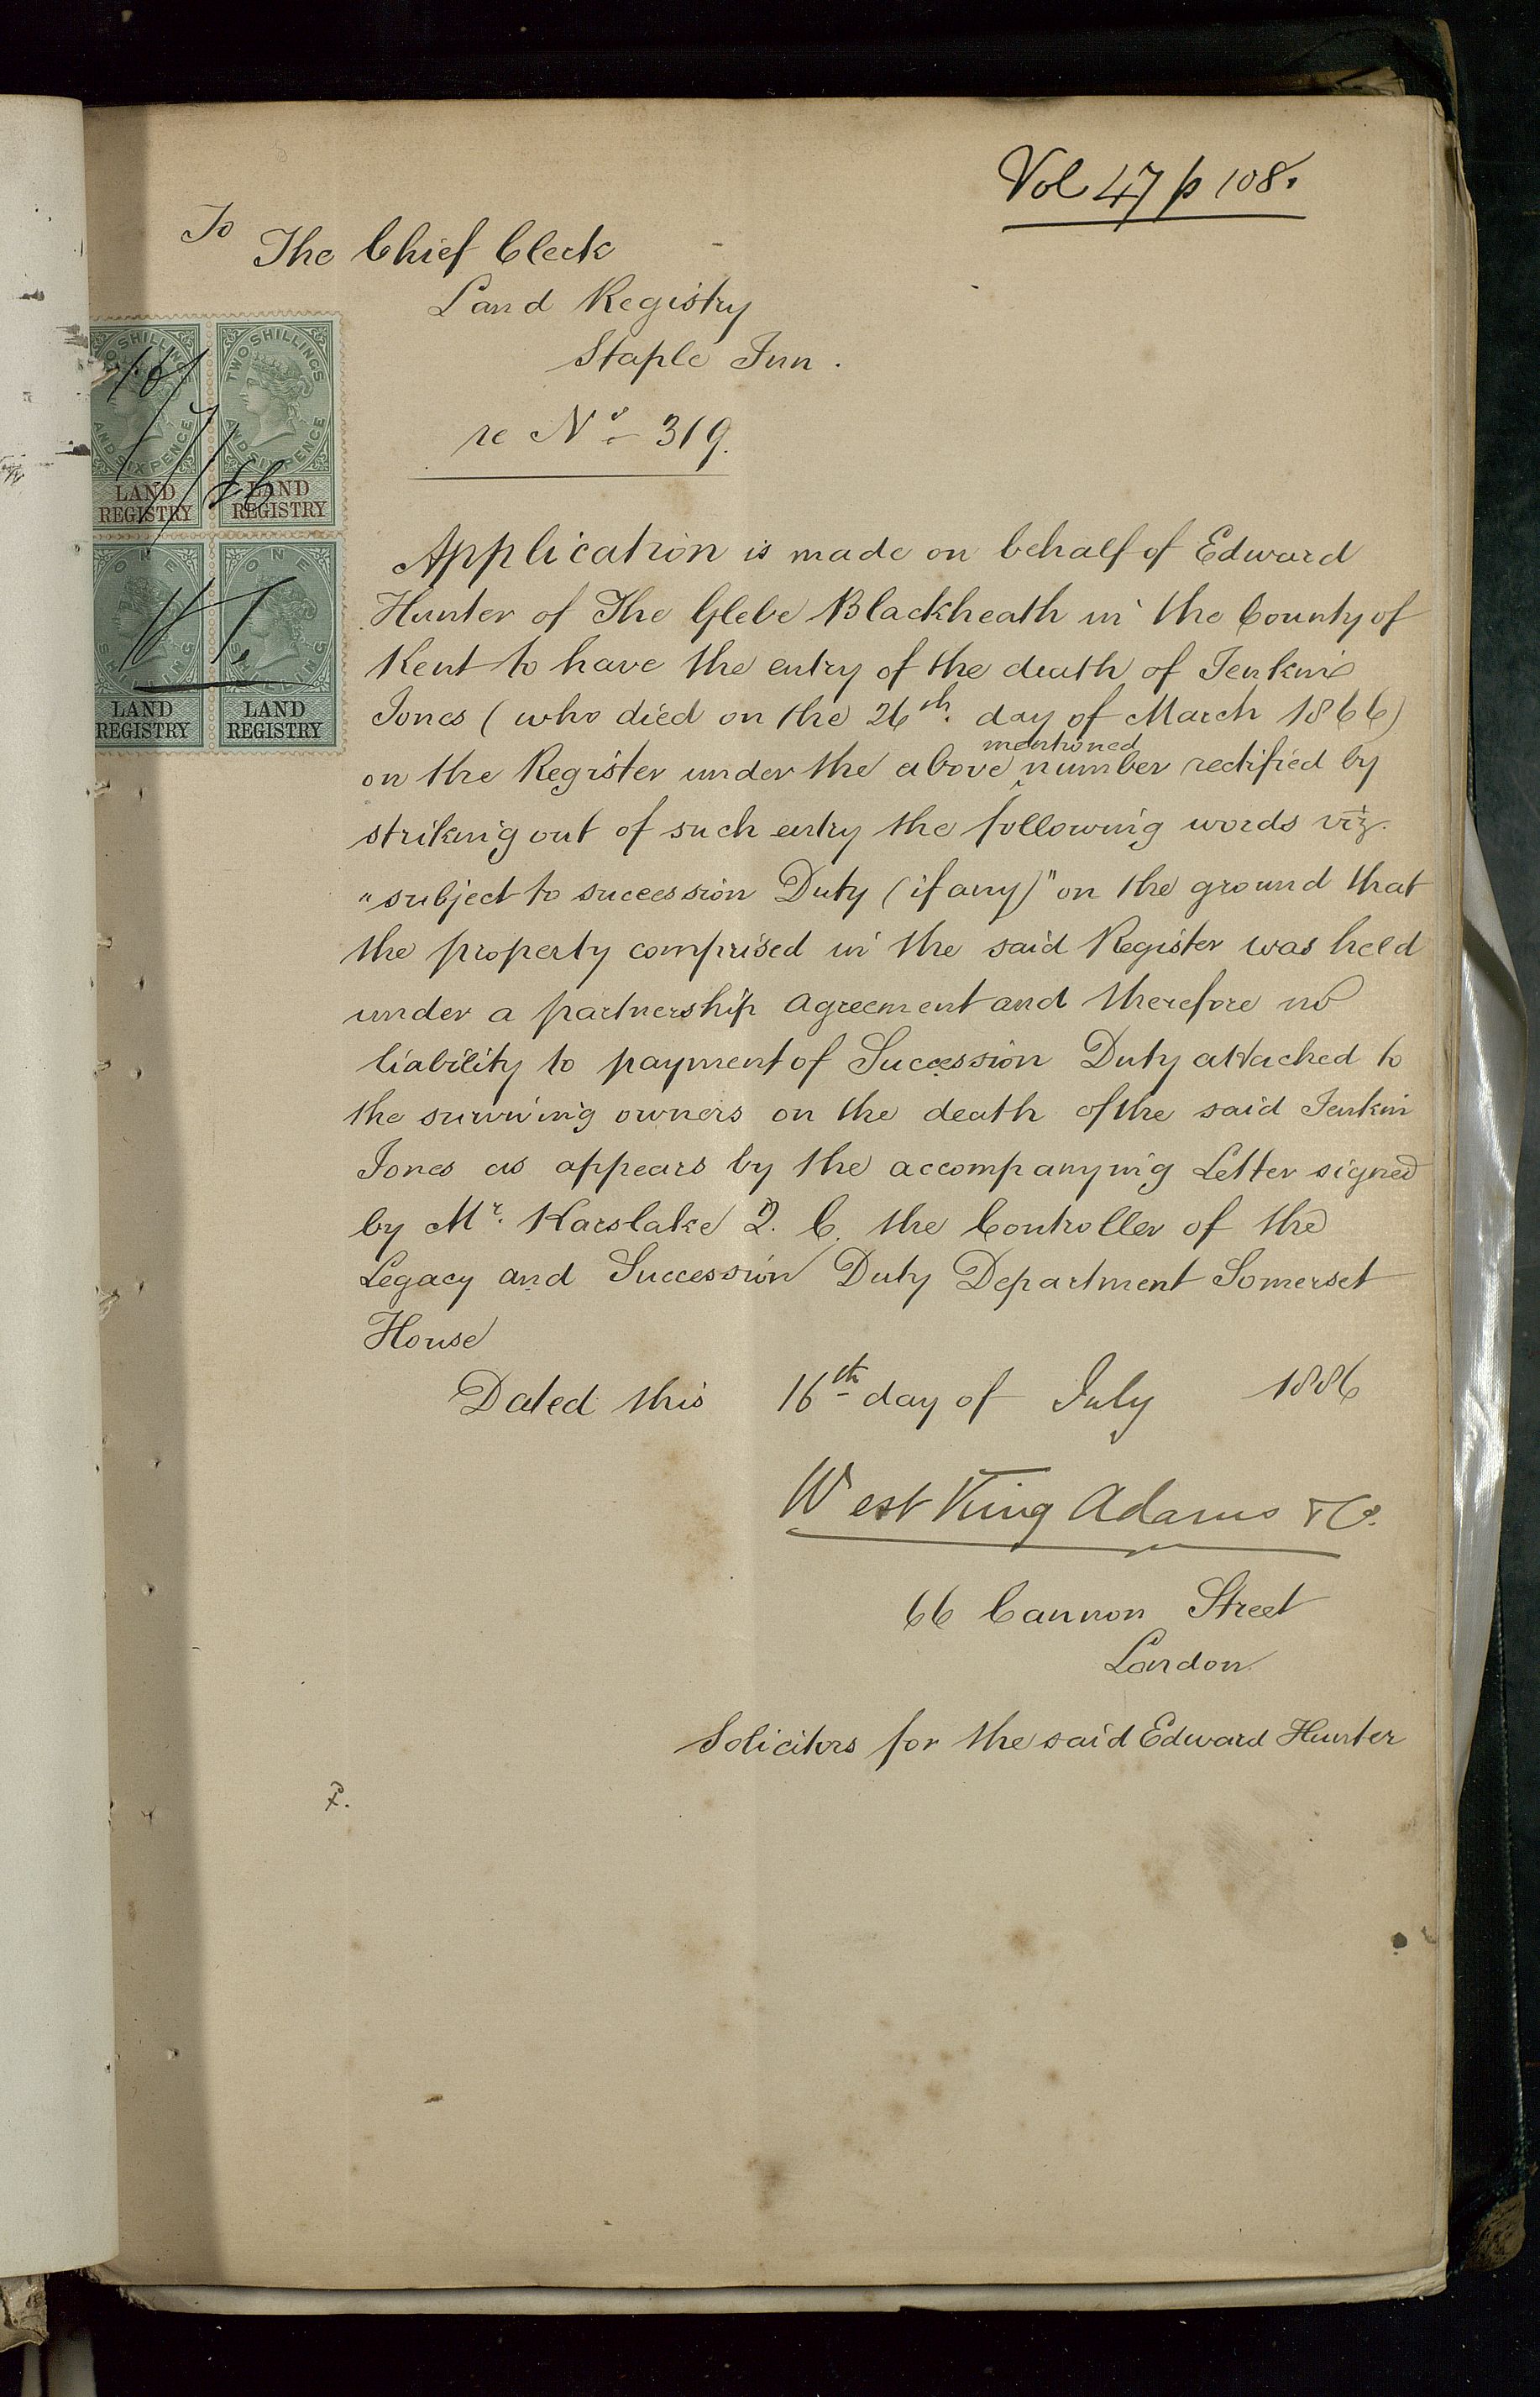 Vol 47 p 108.
To
The Chief Clerk
Land Registry
Staple Inn.
re No. 319.
TWO SHILLINGS AND SIXPENCE
LAND REGISTRY
TWO SHILLINGS AND SIXPENCE
LAND REGISTRY
16/7/86
ONE SHILLING
LAND REGISTRY
ONE SHILLING
LAND REGISTRY
Application is made on behalf of Edward
Hunter of The Glebe Blackheath in the County of
Kent to have the entry of the death of Jenkin
Jones (who died on the 26th. day of March 1866)
mentioned
on the Register under the above number rectified by
striking out of such entry the following words viz.
"subject to succession Duty (if any)" on the ground that
the property comprised in the said Register was held
under a partnership agreement and therefore no
liability to payment of Succession Duty attached to
the surviving owners on the death of the said Jenkin
Jones as appears by the accompanying Letter signed
by Mr. Karslake Q. C. the Controller of the
Legacy and Succession Duty Department Somerset
House
Dated this 16th day of July 1886
West King Adams & Co.
66 Cannon Street
London
Solicitors for the said Edward Hunter